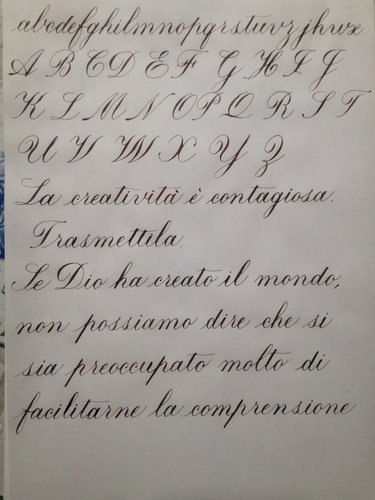 abcdefghilmnopqrstuvz jhwx
A B C D E F G H I J
K L M N O P Q R S T
U V W X Y Z
La creatività è contagiosa.
Trasmettila.
Se Dio ha creato il mondo,
non possiamo dire che si
sia preoccupato molto di
facilitarne la comprensione